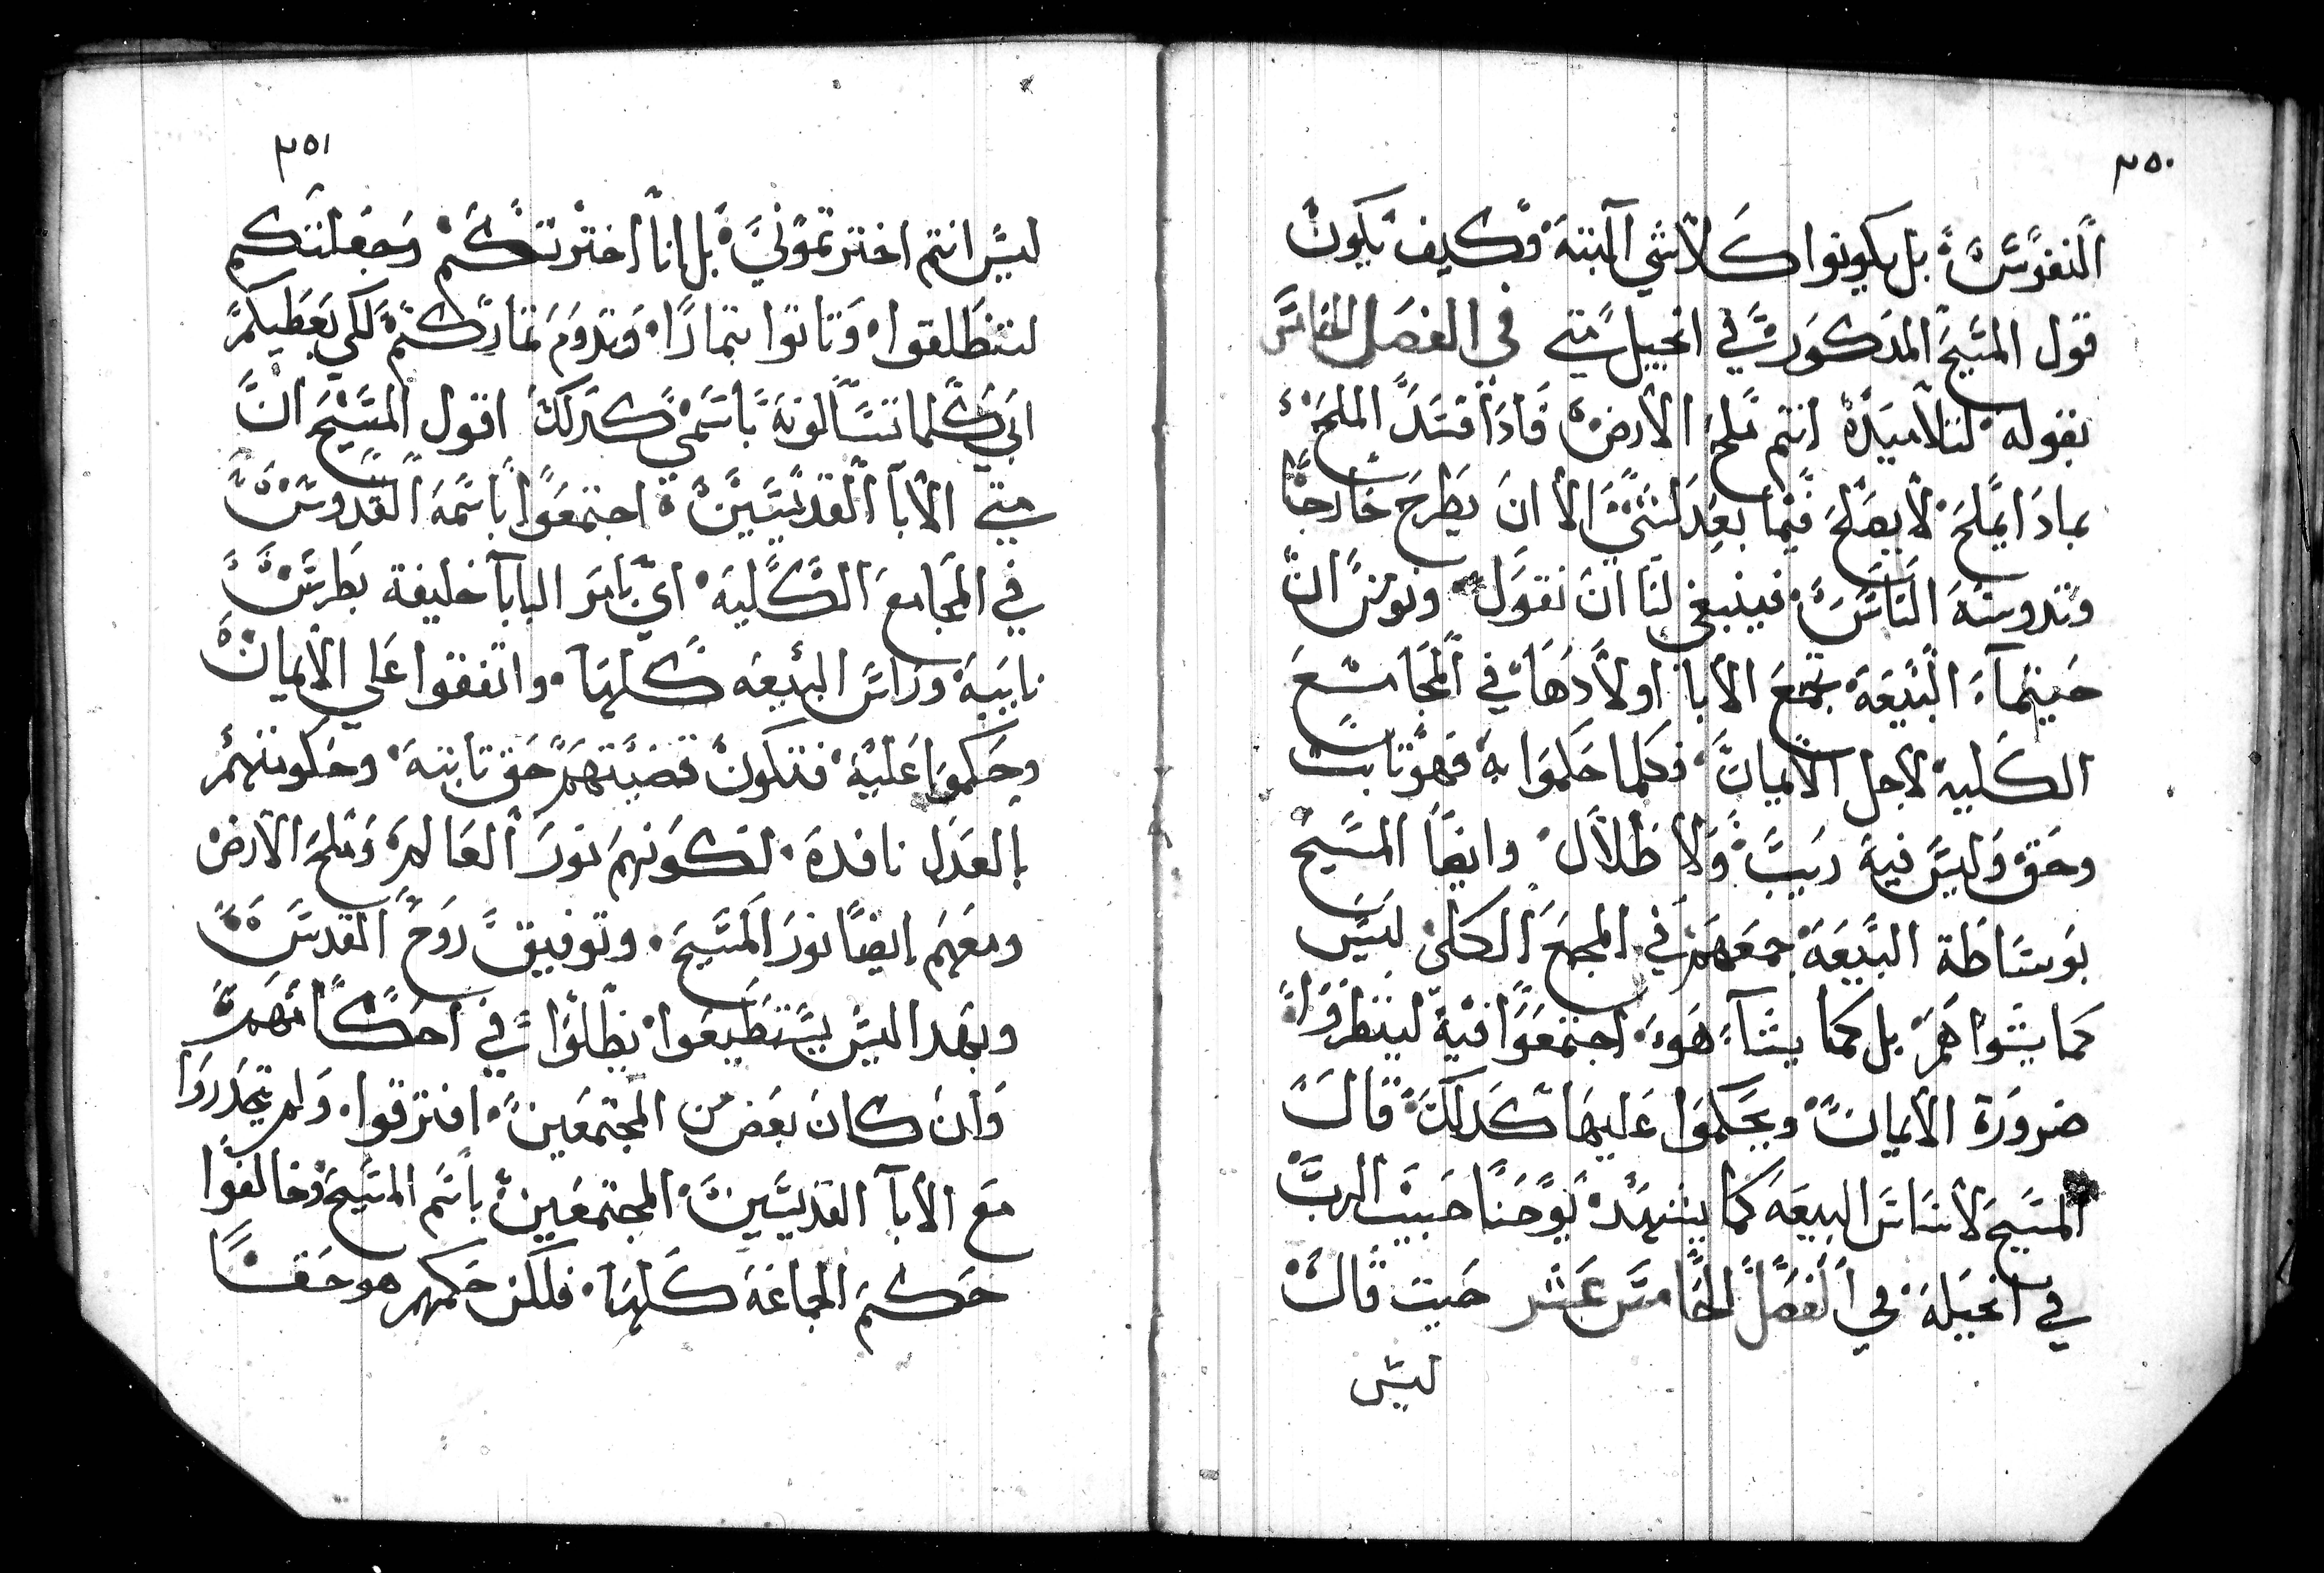 ٣٥٠
النفوس بل يكونوا كلاشي البتة فكيف يكون
قول المسيح المدكور في انجيل متي في الفصل الخامس
بقوله لتلاميده انتم ملح الارض فادا فسد الملح
بمادا يملح لا يصلح فيما بعد لشي الا ان يطرح خارجا
وتدوسه الناس فينبغي لنا ان نقول ونومن ان
حينما البيعة تجمع الابا اولادها في المجامع
الكلية لاجل الايمان فكلما حكموا به فهو تابت
وحق وليس فيه ريب ولا ظلال وايضا المسيح
بوساطة البيعة جمعهم في المجمع الكلي ليس
كما يشوا هم بل كما يشآ هو اجتمعوا فيه لينظروا
ضرورة الايمان ويحكموا عليها كدلك قال
المسيح لاساس البيعه كما يشهد يوحنا حبيب الرب
في انجيله في الفصل الخامس عشر حيت قال
ليس
٣٥١
ليس انتم اخترتموني بل انا اخترتكم وجعلتكم
لتنطلقوا وتاتوا بتمارا وتدوم تماركم لكي يعطيكم
ابي كلما تسالونه باسمي كدلك اقول المسيح ان
متي الابآ القديسيين اجتمعوا باسمه القدوس
في المجامع الكليه اي بامر البابا خليفة بطرس
نايبه وراس البيعه كلها واتفقوا علي الايمان
وحكموا عليه فتكون قضيتهم حق تابته وحكومتهم
بالعدل نافده لكونهم نور العالم وملح الارض
ومعهم ايضا نور المسيح وتوفيق روح القدس
وبهدا ليس يستطيعوا يظلوا في احكامهم
وان كان بعض من المجتمعين افترقوا ولم يتحدروا
مع الابآ القديسين المجتمعين باسم المسيح وخالفوا
حكم الجاعة كلها فلكن حكمهم هو حقا